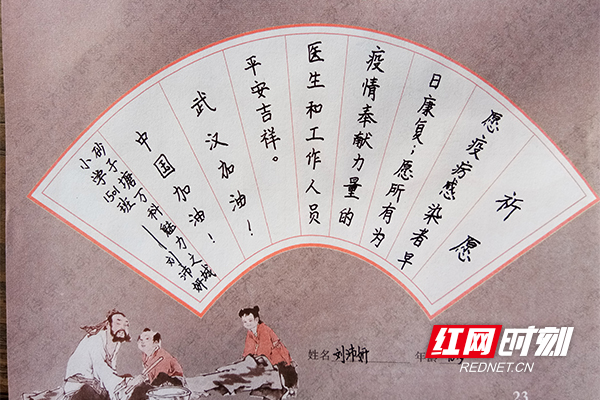 祈愿
愿疫病感染者早
日康复；愿所有为
疫情奉献力量的
医生和工作人员
平安吉祥。
武汉加油！
中国加油！
砂子塘万科魅力之城
小学1501班——刘沛妍
姓名 刘沛妍 年龄
红网时刻
REDNET.CN
23